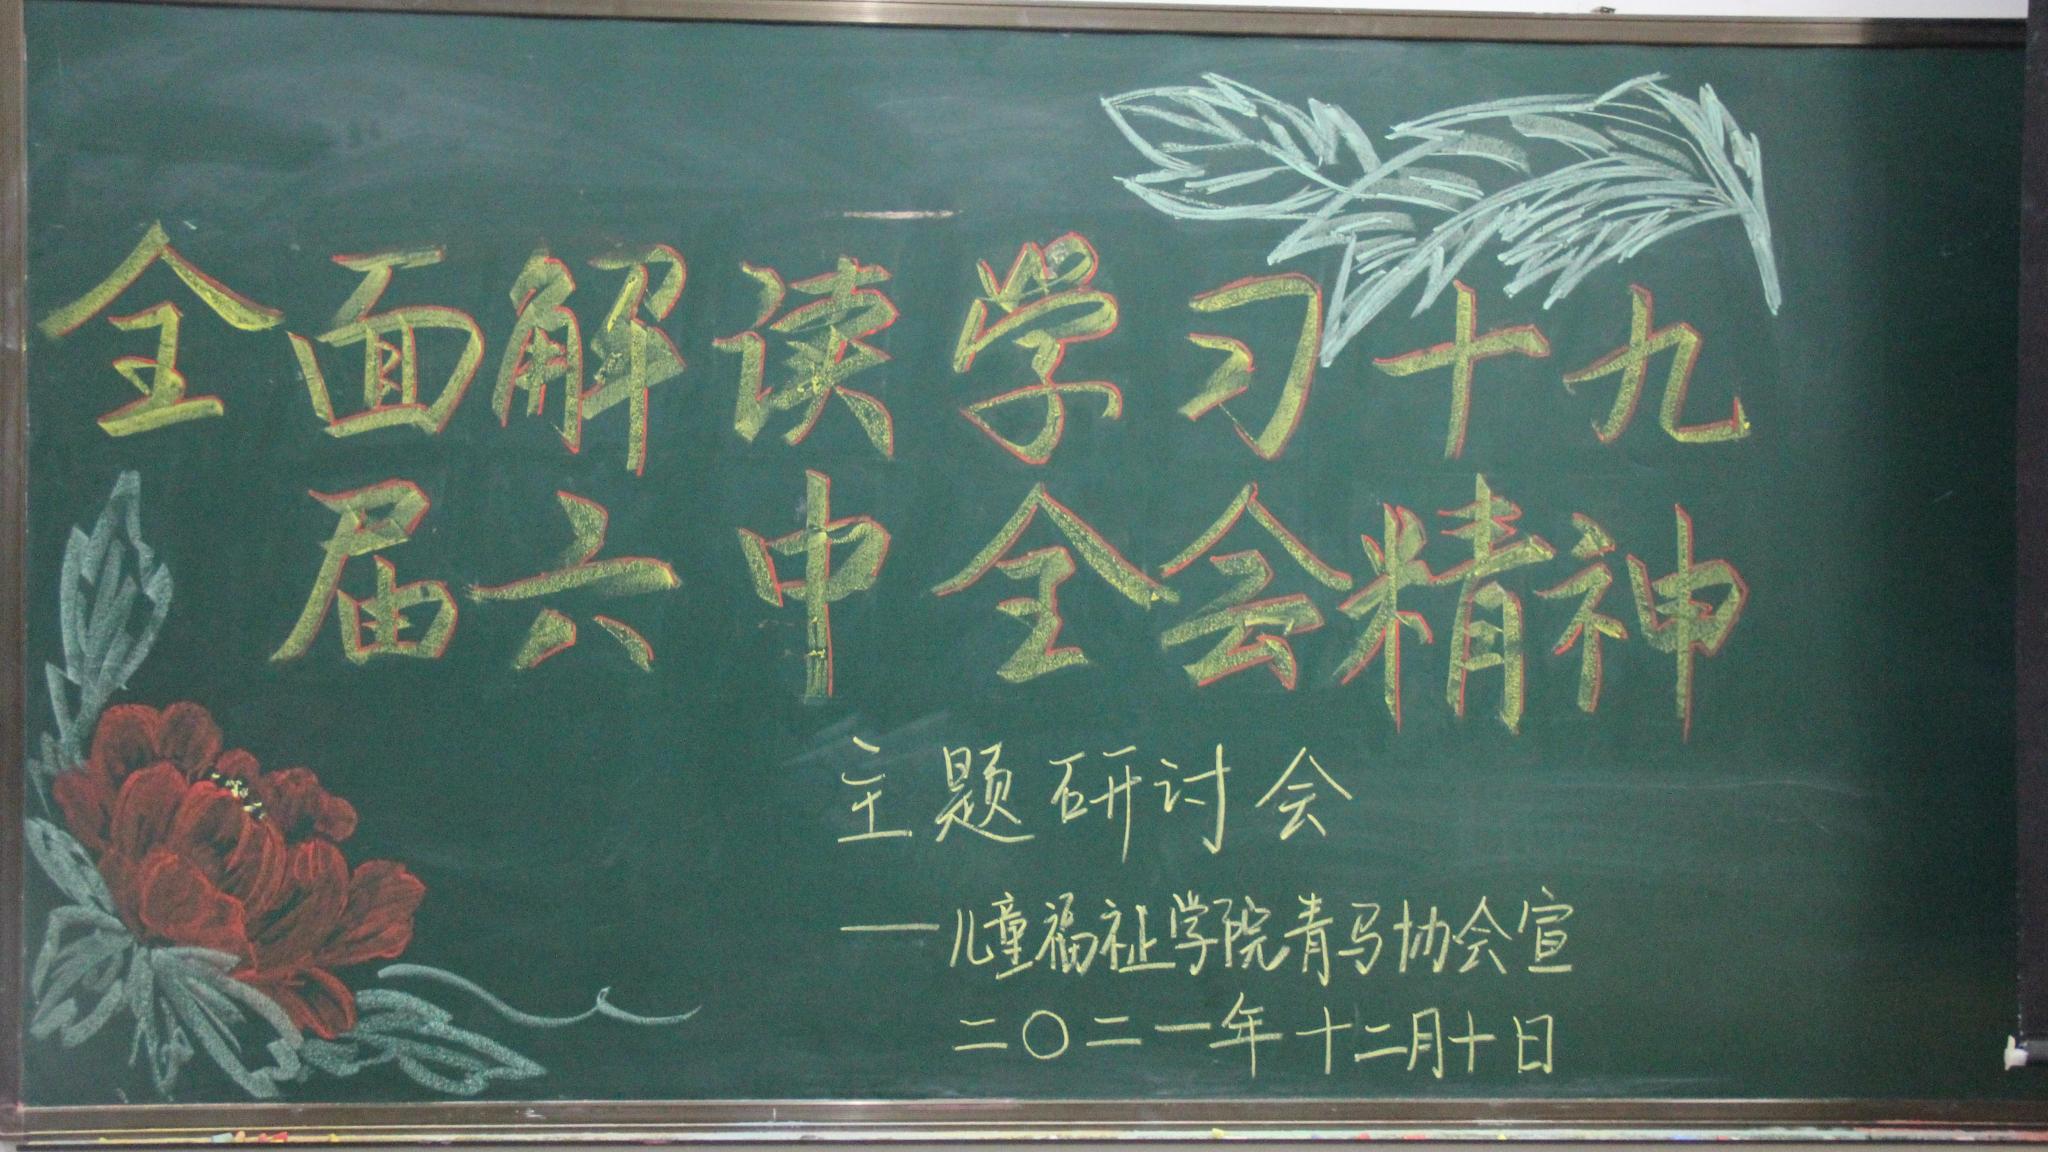 全面解读学习十九
届六中全会精神
主题研讨会
——儿童福祉学院青马协会宣
二〇二一年十二月十日